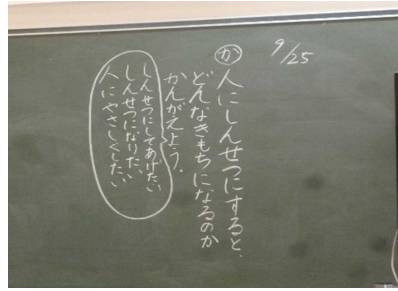 9/25
か 人にしんせつにすると、
どんなきもちになるのか
かんがえよう。
しんせつにしてあげたい
しんせつになりたい
人にやさしくしたい